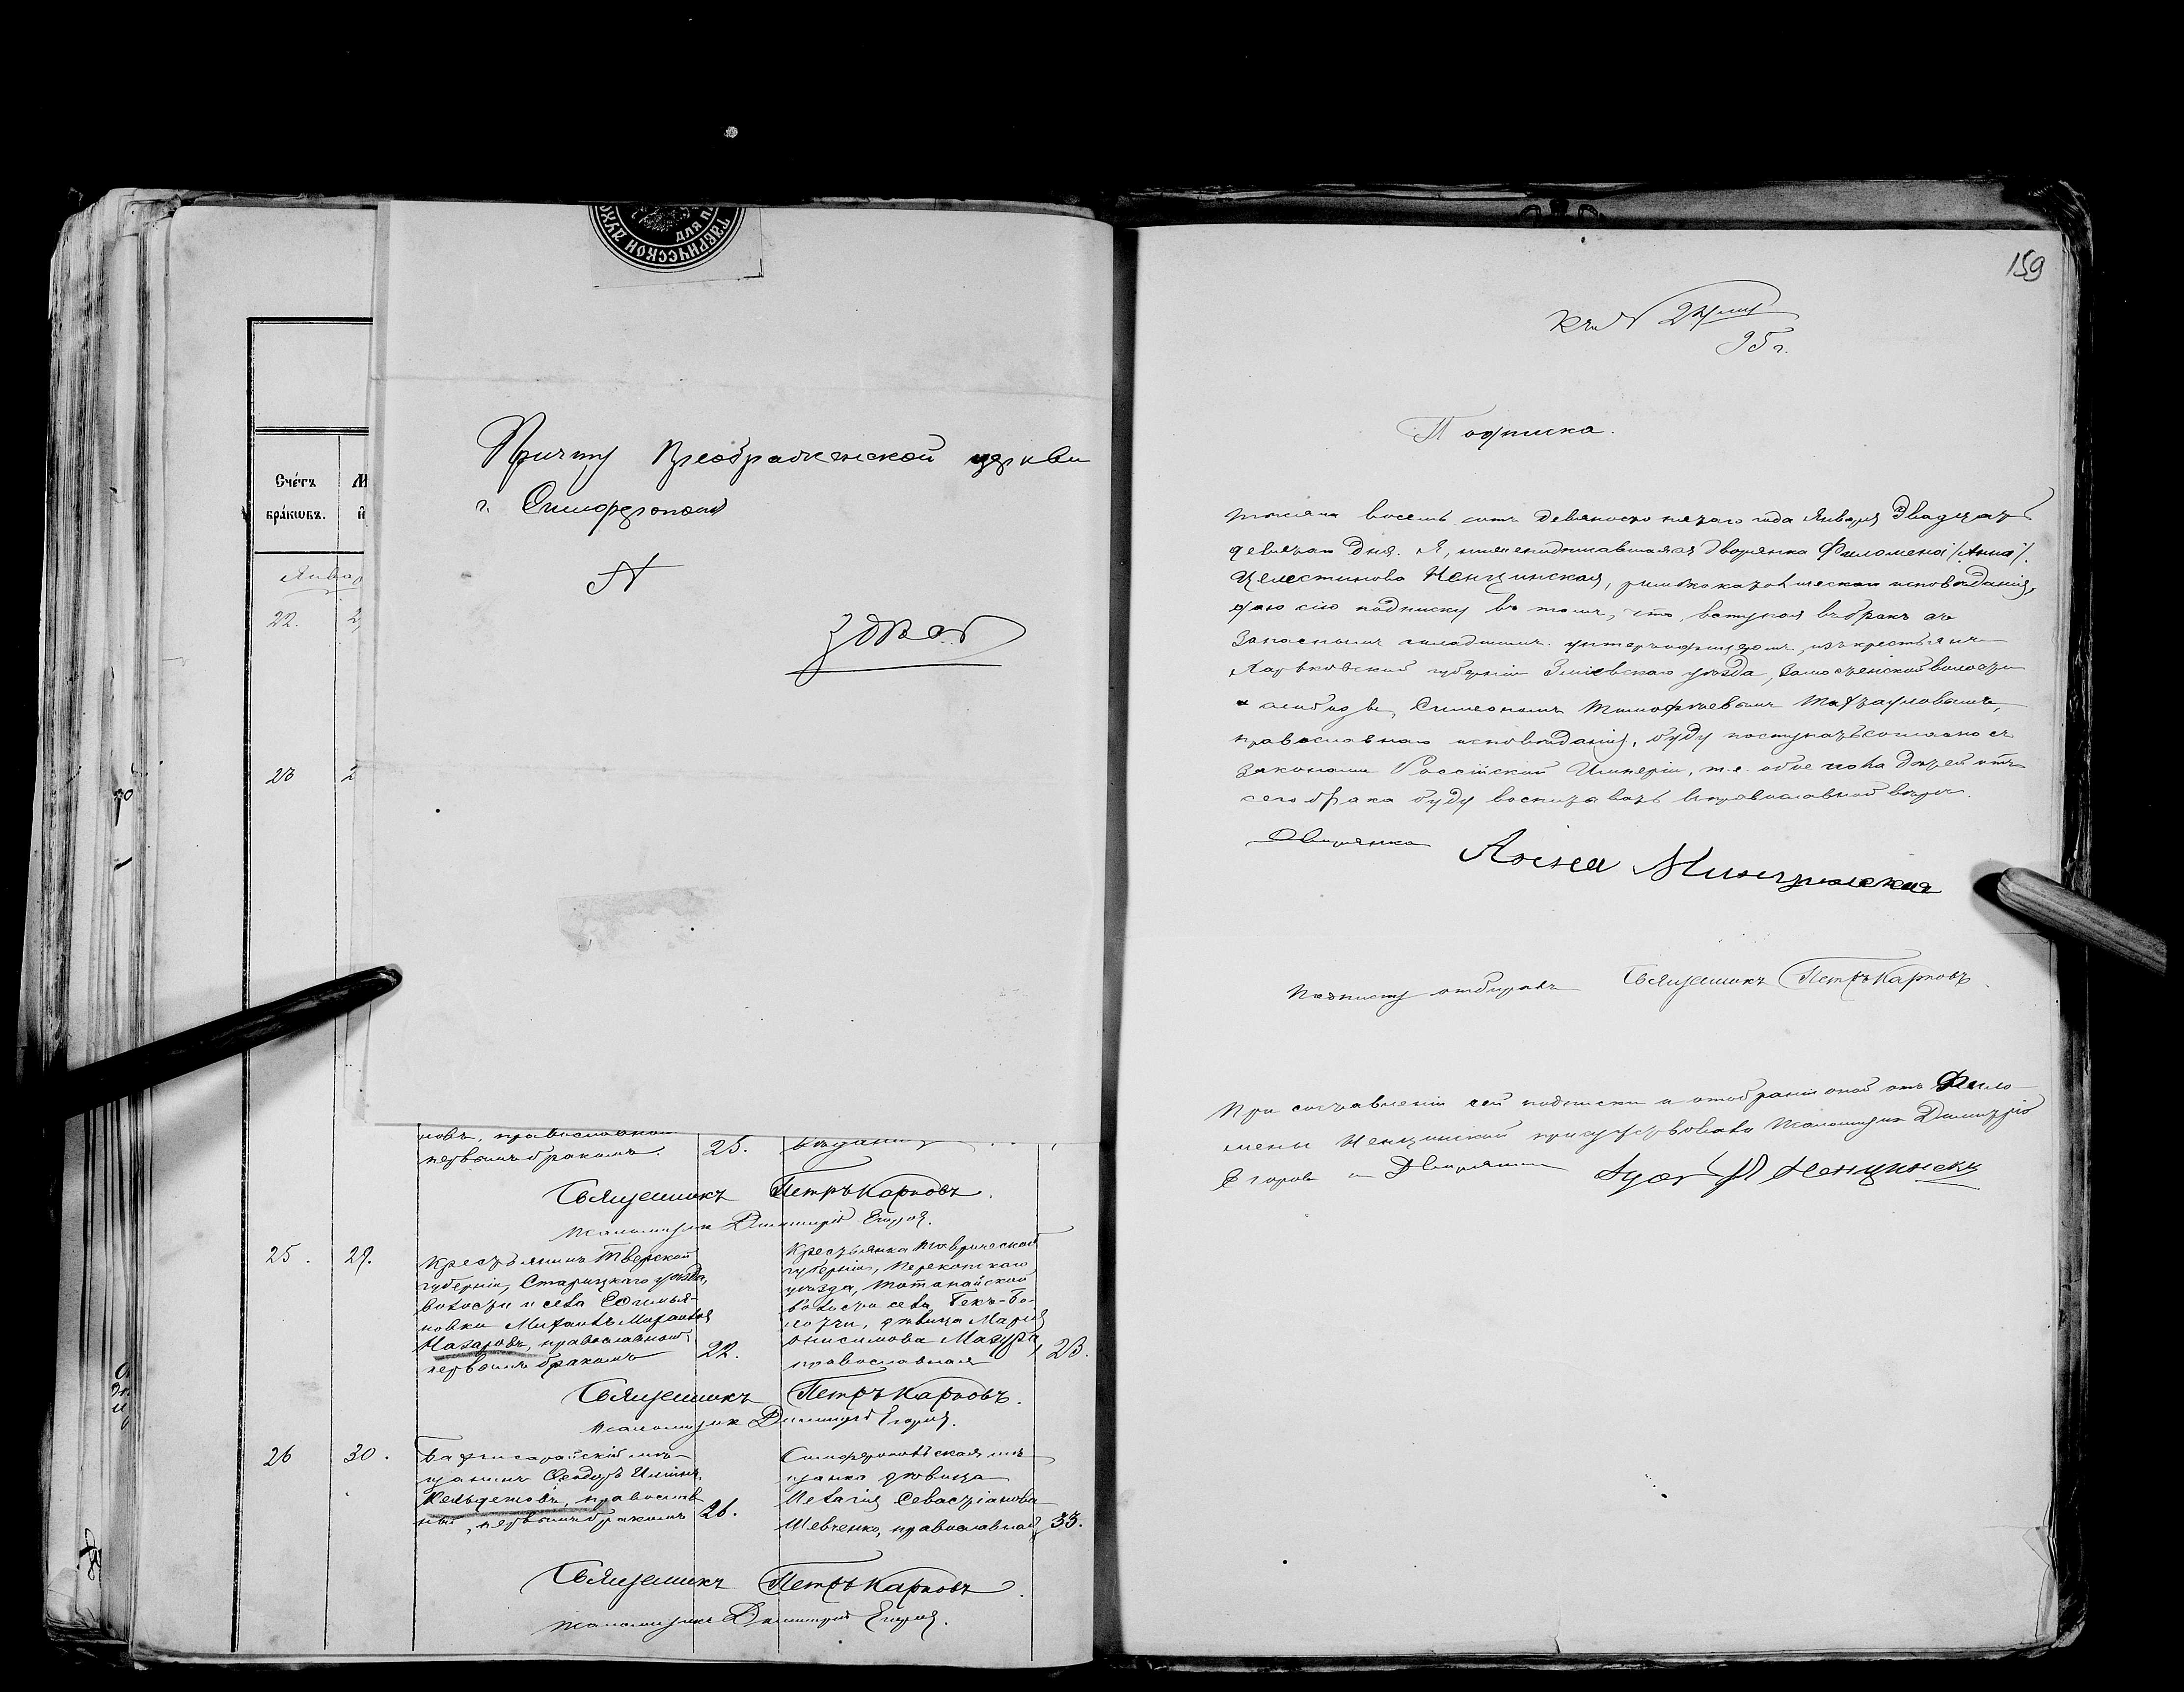 ТАВРИЧЕСКОЙ ДУХО
ДЛЯ П
Счéтъ
брáкѡвъ.
Январ
22.
23
Причту Преображенской церкви
г. Симферополя
N
новъ, православнаго
первымъ бракомъ. 25.
Священникъ Петръ Карповъ.
Псаломщикъ Димитрій Егоровъ.
25. 29. Крестьянинъ Тверской
губерніи, Старицкаго уѣзда,
волости и села
Михаилъ Михаиловъ
Назаровъ, православный,
первымъ бракомъ 22.
Крестьянка Таврической
губерніи, Перекопскаго
уѣзда, Тотанайской
волости села Бекъ-Бо-
дѣвица Марія
Онисимова Мазура,
православная 23.
Священникъ Петръ Карповъ.
Псаломщикъ Димитрій Егоровъ.
26 30. Бахчисарайскій мѣ-
щанинъ Ѳеодоръ
православ
ный, первымъ бракомъ 26.
Симферопольская мѣ-
щанка дѣвица
Пелагія Севастіанова
Шевченко, православная, 33.
Священникъ Петръ Карповъ.
Псаломщикъ Димитрій Егоровъ.
159
Къ № 24
95 г.
Подписка.
Тысяча восемь сотъ девяносто пятаго года Января двадцать
девятаго дня. Я, нижеподписавшаяся дворянка Филомена /Анна/.
Целестинова Ненцинская, римскокатолическаго исповѣданія,
даю сію подписку въ томъ, что, вступая въ бракъ съ
запаснымъ младшимъ унтеръ-офицеромъ, изъ крестьянъ
Харьковской губерніи Зміевскаго уѣзда, Замостянской волости
и слободы, Симеономъ Тимофѣевымъ
православнаго исповѣданія, буду поступать согласно съ
законами Россійской Имперіи, т.е. обоего пола дѣтей отъ
сего брака буду воспитывать въ православной вѣрѣ.
Дворянка Анна
Подписку отбиралъ Священникъ Петръ Карповъ.
При составленіи сей подписки и отобраніи оной отъ Фило-
мены Ненцинской присутствовали Псаломщикъ Димитрій
Егоровъ и Дворянинъ